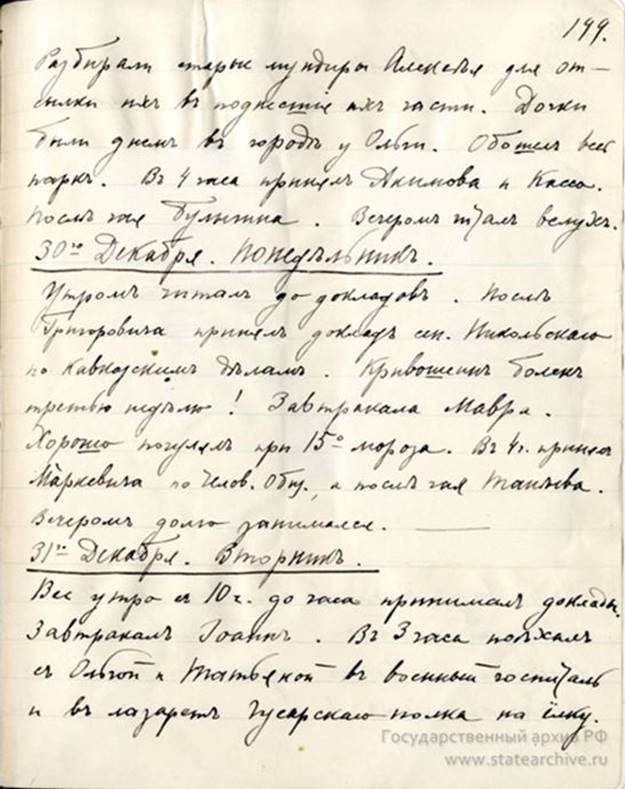 199.
Разбирали старые мундиры Алексѣя для от-
сылки ихъ въ подшефныя ихъ части. Дочки
были днемъ въ городѣ у Ольги. Обошелъ весь
паркъ. Въ 4 часа принялъ Акимова и Кассо.
Послѣ чая Булыгина. Вечеромъ читалъ вслухъ.
30го Декабря. Понедѣльникъ.
Утромъ читалъ до докладовъ. Послѣ
Григоровича принялъ докладъ сен. Никольскаго
по Кавказскимъ дѣламъ. Кривошеинъ боленъ
третью недѣлю! Завтракала Мавра.
Хорошо погулялъ при 15° мороза. Въ 4 ч. принялъ
Маркевича по Челов. Общ., а послѣ чая Танѣева.
Вечеромъ долго занимался.
31го Декабря. Вторникъ.
Все утро съ 10 ч. до часа принималъ доклады.
Завтракалъ Іоаннъ. Въ 3 часа поѣхалъ
съ Ольгой и Татьяной въ военный госпиталь
и въ лазаретъ Гусарскаго полка на ёлку.
Государственный архив РФ
www.statearchive.ru